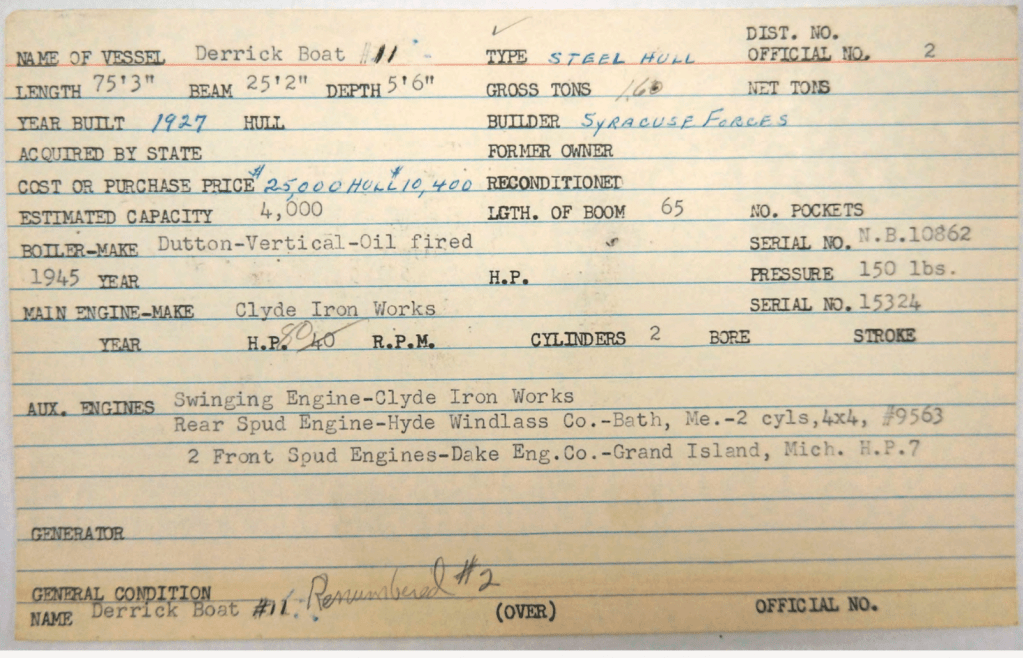 DIST. NO.
NAME OF VESSEL Derrick Boat #11 TYPE STEEL HULL OFFICIAL NO. 2
LENGTH 75'3" BEAM 25'2" DEPTH 5'6" GROSS TONS 160 NET TONS
YEAR BUILT 1927 HULL BUILDER SYRACUSE FORCES
ACQUIRED BY STATE FORMER OWNER
COST OR PURCHASE PRICE $25,000 HULL $10,400 RECONDITIONED
ESTIMATED CAPACITY 4,000 LGTH. OF BOOM 65 NO. POCKETS
BOILER-MAKE Dutton-Vertical-Oil fired SERIAL NO. N.B.10862
1945 YEAR H.P. PRESSURE 150 lbs.
MAIN ENGINE-MAKE Clyde Iron Works SERIAL NO. 15324
YEAR H.P. 80 40 R.P.M. CYLINDERS 2 BORE STROKE
AUX. ENGINES Swinging Engine-Clyde Iron Works
Rear Spud Engine-Hyde Windlass Co.-Bath, Me.-2 cyls,4x4, #9563
2 Front Spud Engines-Dake Eng.Co.-Grand Island, Mich. H.P.7
GENERATOR
GENERAL CONDITION
NAME Derrick Boat #11 Renumbered #2 (OVER) OFFICIAL NO.